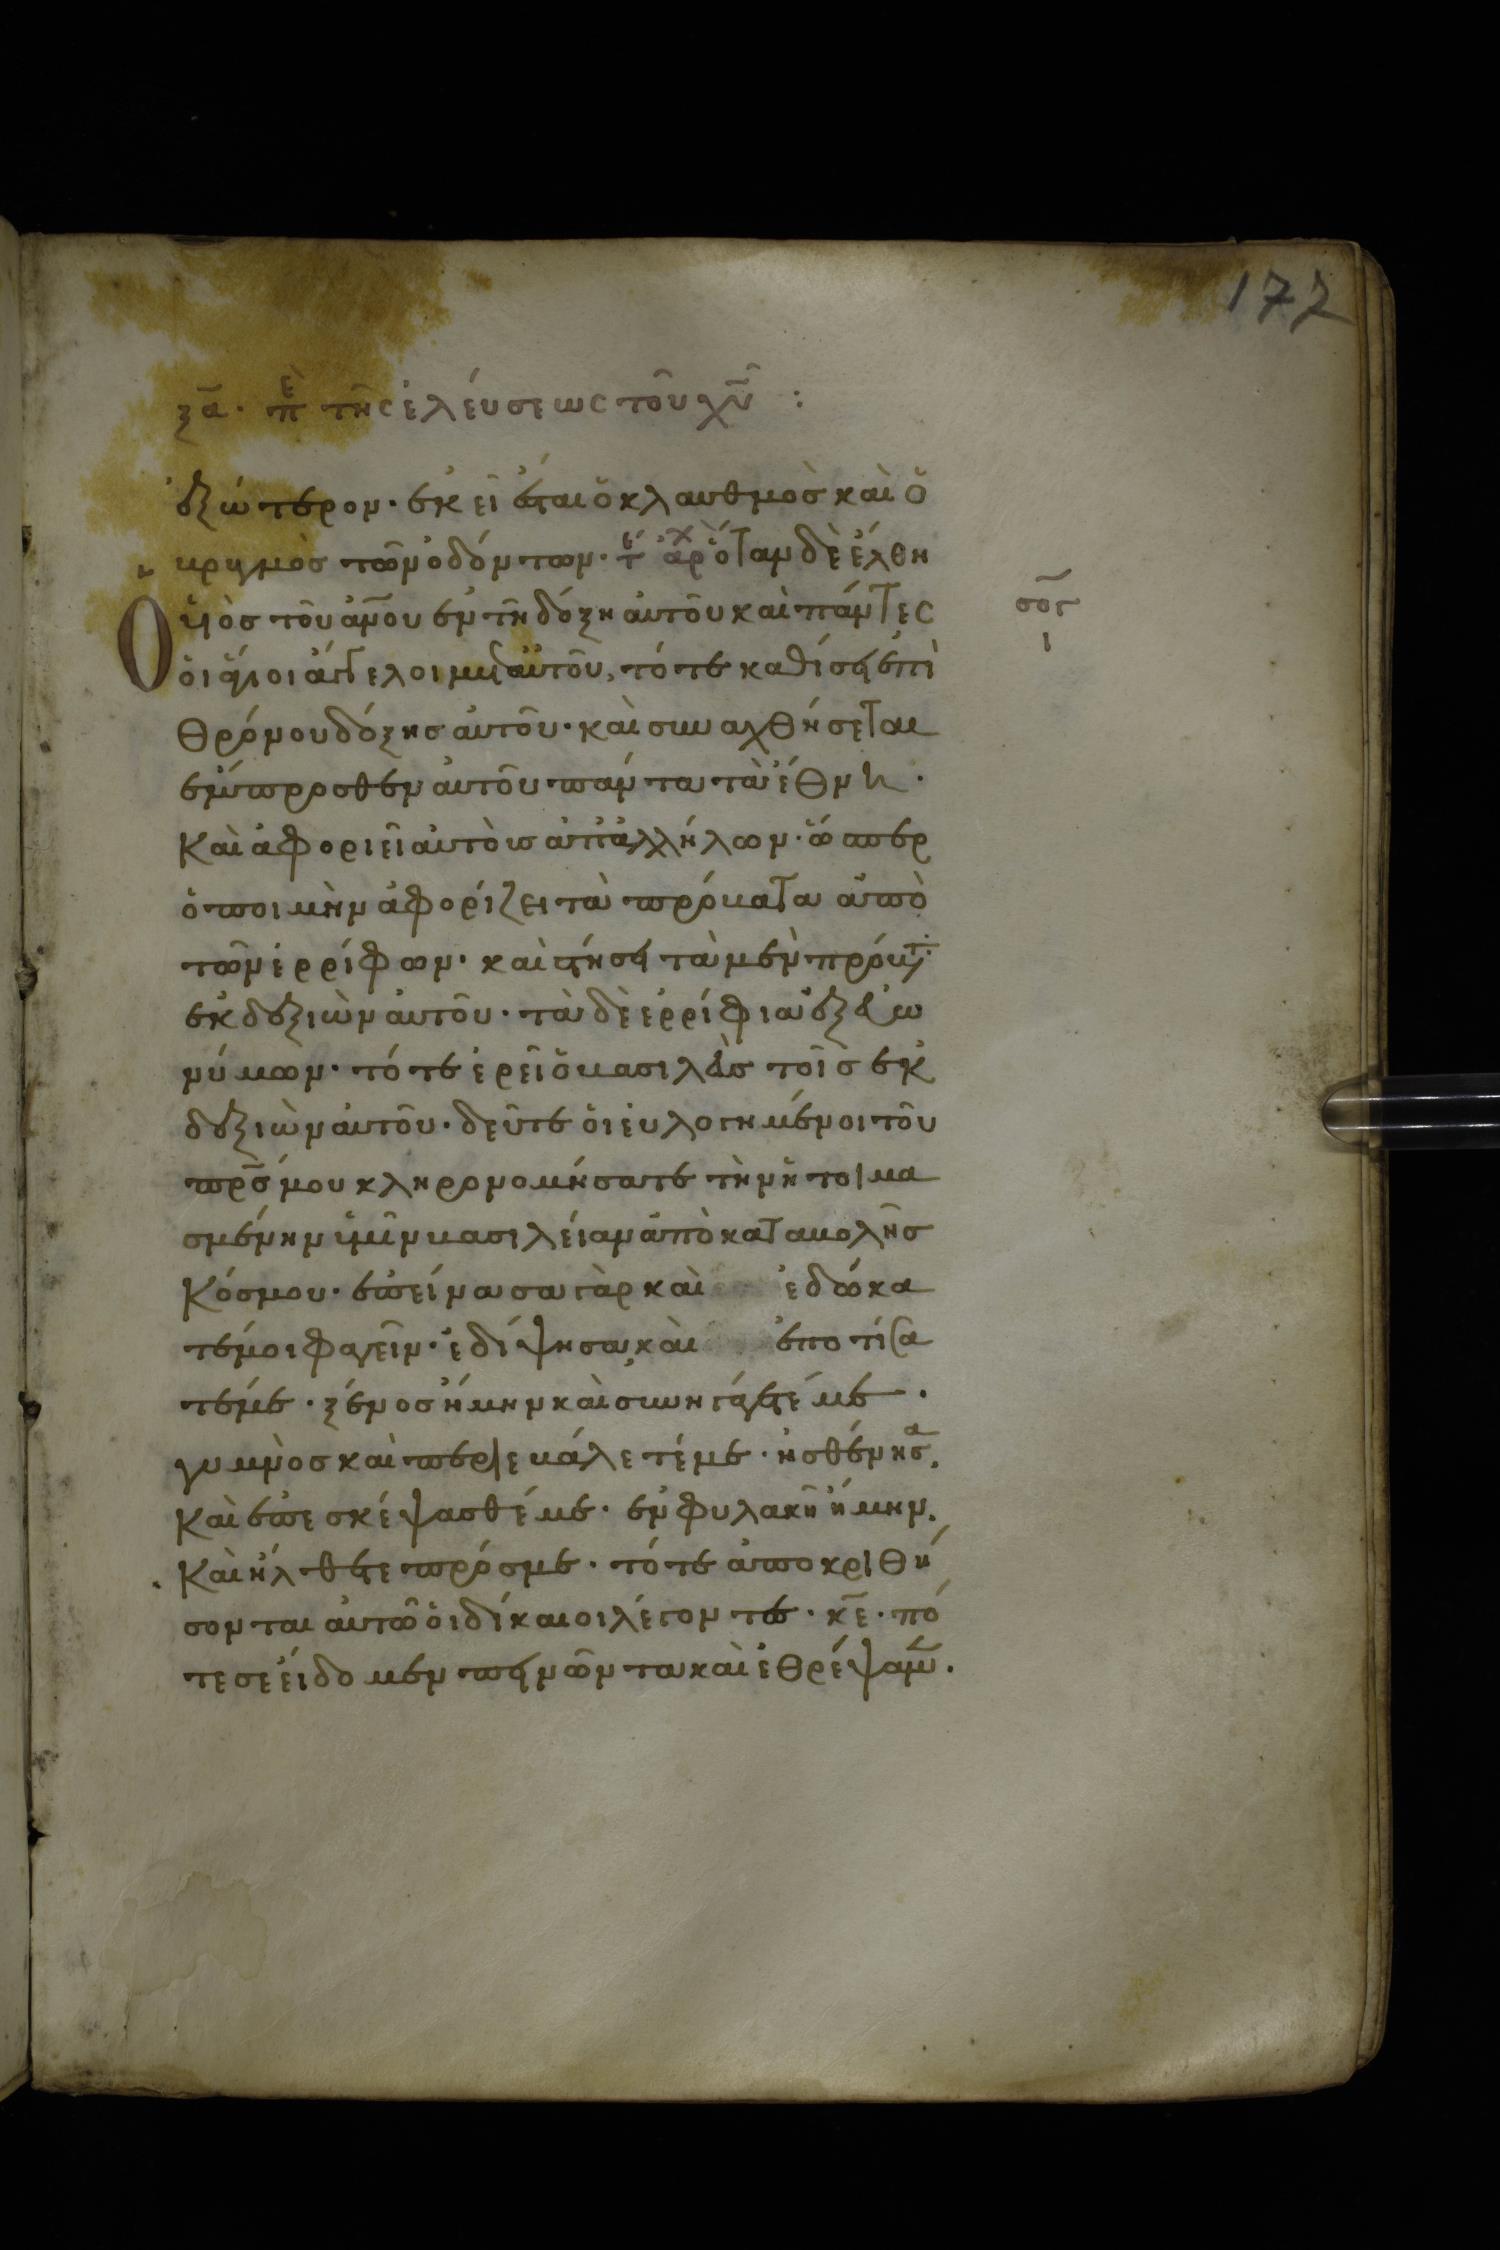 177
ξα̅· πὲ τῆς ἐλεύσεως τοῦ χυ̅ :
ἐξώτερον· ἐκεῖ ἔσται ὁ κλαυθμὸσ καὶ ὁ
βρυγμὸσ τῶν ὀδόντων· τέ ἀρχ ὅταν δὲ ἔλθη
Ὁ ὑιὸσ τοῦ ἀν̅ου ἐν τῆ δόξη ἀυτοῦ καὶ πάντες
σος̅
ὁι ἅγιοι ἄγγελοι μετ αὐτοῦ, τότε καθίσει ἐπὶ
ι
θρόνου δόξησ ἀυτοῦ· καὶ συναχθήσεται
ἔμπροσθεν ἀυτοῦ πάντα τὰ ἔθνη·
Καὶ ἀφοριεῖ ἀυτὸυσ ἀπ ἀλλήλων· ὥσπερ
ὁ ποιμὴν ἀφορίζει τὰ πρόβατα ἀπὸ
τῶν ἐρρίφων· καὶ στήσει τὰ μὲν πρόβτ
ἐκ δεξιὼν ἀυτοῦ· τὰ δὲ ἐρρίφια ἐξ ἐυω
νύμων· τότε ἐρεῖ ὁ βασιλεὺσ τοῖσ ἐκ
δεξιὼν ἀυτοῦ· δεῦτε ὁι ἐυλογημένοι τοῦ
πρ̅σ μου κληρονομήσατε τὴν ἡτοιμα
σμένην ὑμῖν βασιλείαν ἀπὸ καταβολῆσ
Κόσμου· ἐπείνασα γὰρ καὶ ἐδώκα
τέμοι φαγεῖν· ἐδίψησα καὶ ἐποτίσα
τέμε· ξένοσ ἤμην καὶ συνηγάγετέ με·
γυμνὸσ καὶ περιεβάλετέ με· ἠσθένησα,
Καὶ ἐπεσκέψασθέ με· ἐν φυλακῆ ἤμην,
Καὶ ἤλθετε πρόσ με· τότε ἀποκριθή
σονται ἀυτῶ ὁι δίκαιοι λέγοντεσ· κε̅· πό
τε σε ἐίδομεν πεινῶντα καὶ ἐθρέψαμ̅·